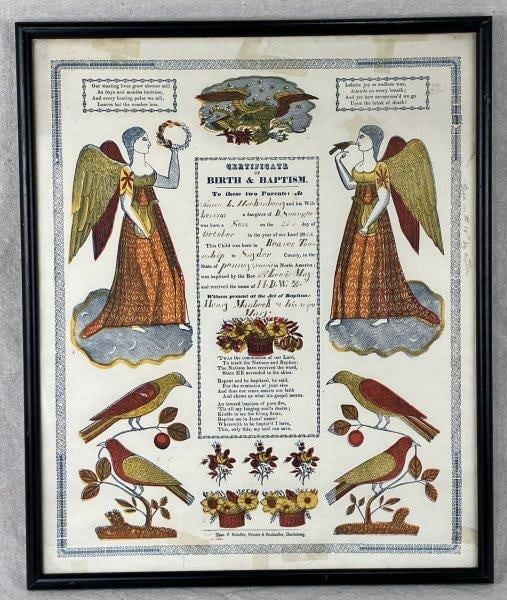 Our wasting lives grow shorter still
As days and months increase,
And every beating pulse we tell,
Leaves but the number less.
Infinite joy or endless woe,
Attends on every breath;
And yet how unconcern'd we go
Upon the brink of death!
CERTIFICATE
OF
BIRTH & BAPTISM.
To these two Parents: As
L. Hackenberg and his wife
a daughter of
was born a Son on the day of
October in the year of our Lord 18
This Child was born in Beaver Town-
ship in Snyder County, in the
State of pennsylvania in North America;
was baptized by the Rev. May
and received the name of H.D.W.
Witness present at the Act of Baptism:
Henry & his wife
Mary
'Twas the commission of our Lord,
To teach the Nations and Baptize:
The Nations have received the word,
Since HE ascended to the skies.
Repent and be baptized, he said,
For the remission of your sins
And thus our sense assists our faith
And shows us what his gospel means.
An inward baptism of pure fire,
'Tis all my longing soul's desire;
Kindle in me the living flame,
Baptize me in Jesus' name!
Wherewith to be baptiz'd I have,
This, only this, my soul can save.
Theo. F. Scheffer, Printer & Bookseller, Harrisburg.